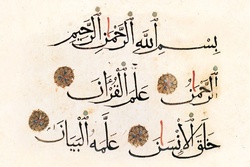 بِسْمِ اللَّهِ الرَّحْمَٰنِ الرَّحِيمِ
الرَّحْمَٰنُ عَلَّمَ الْقُرْآنَ
خَلَقَ الْإِنْسَانَ عَلَّمَهُ الْبَيَانَ